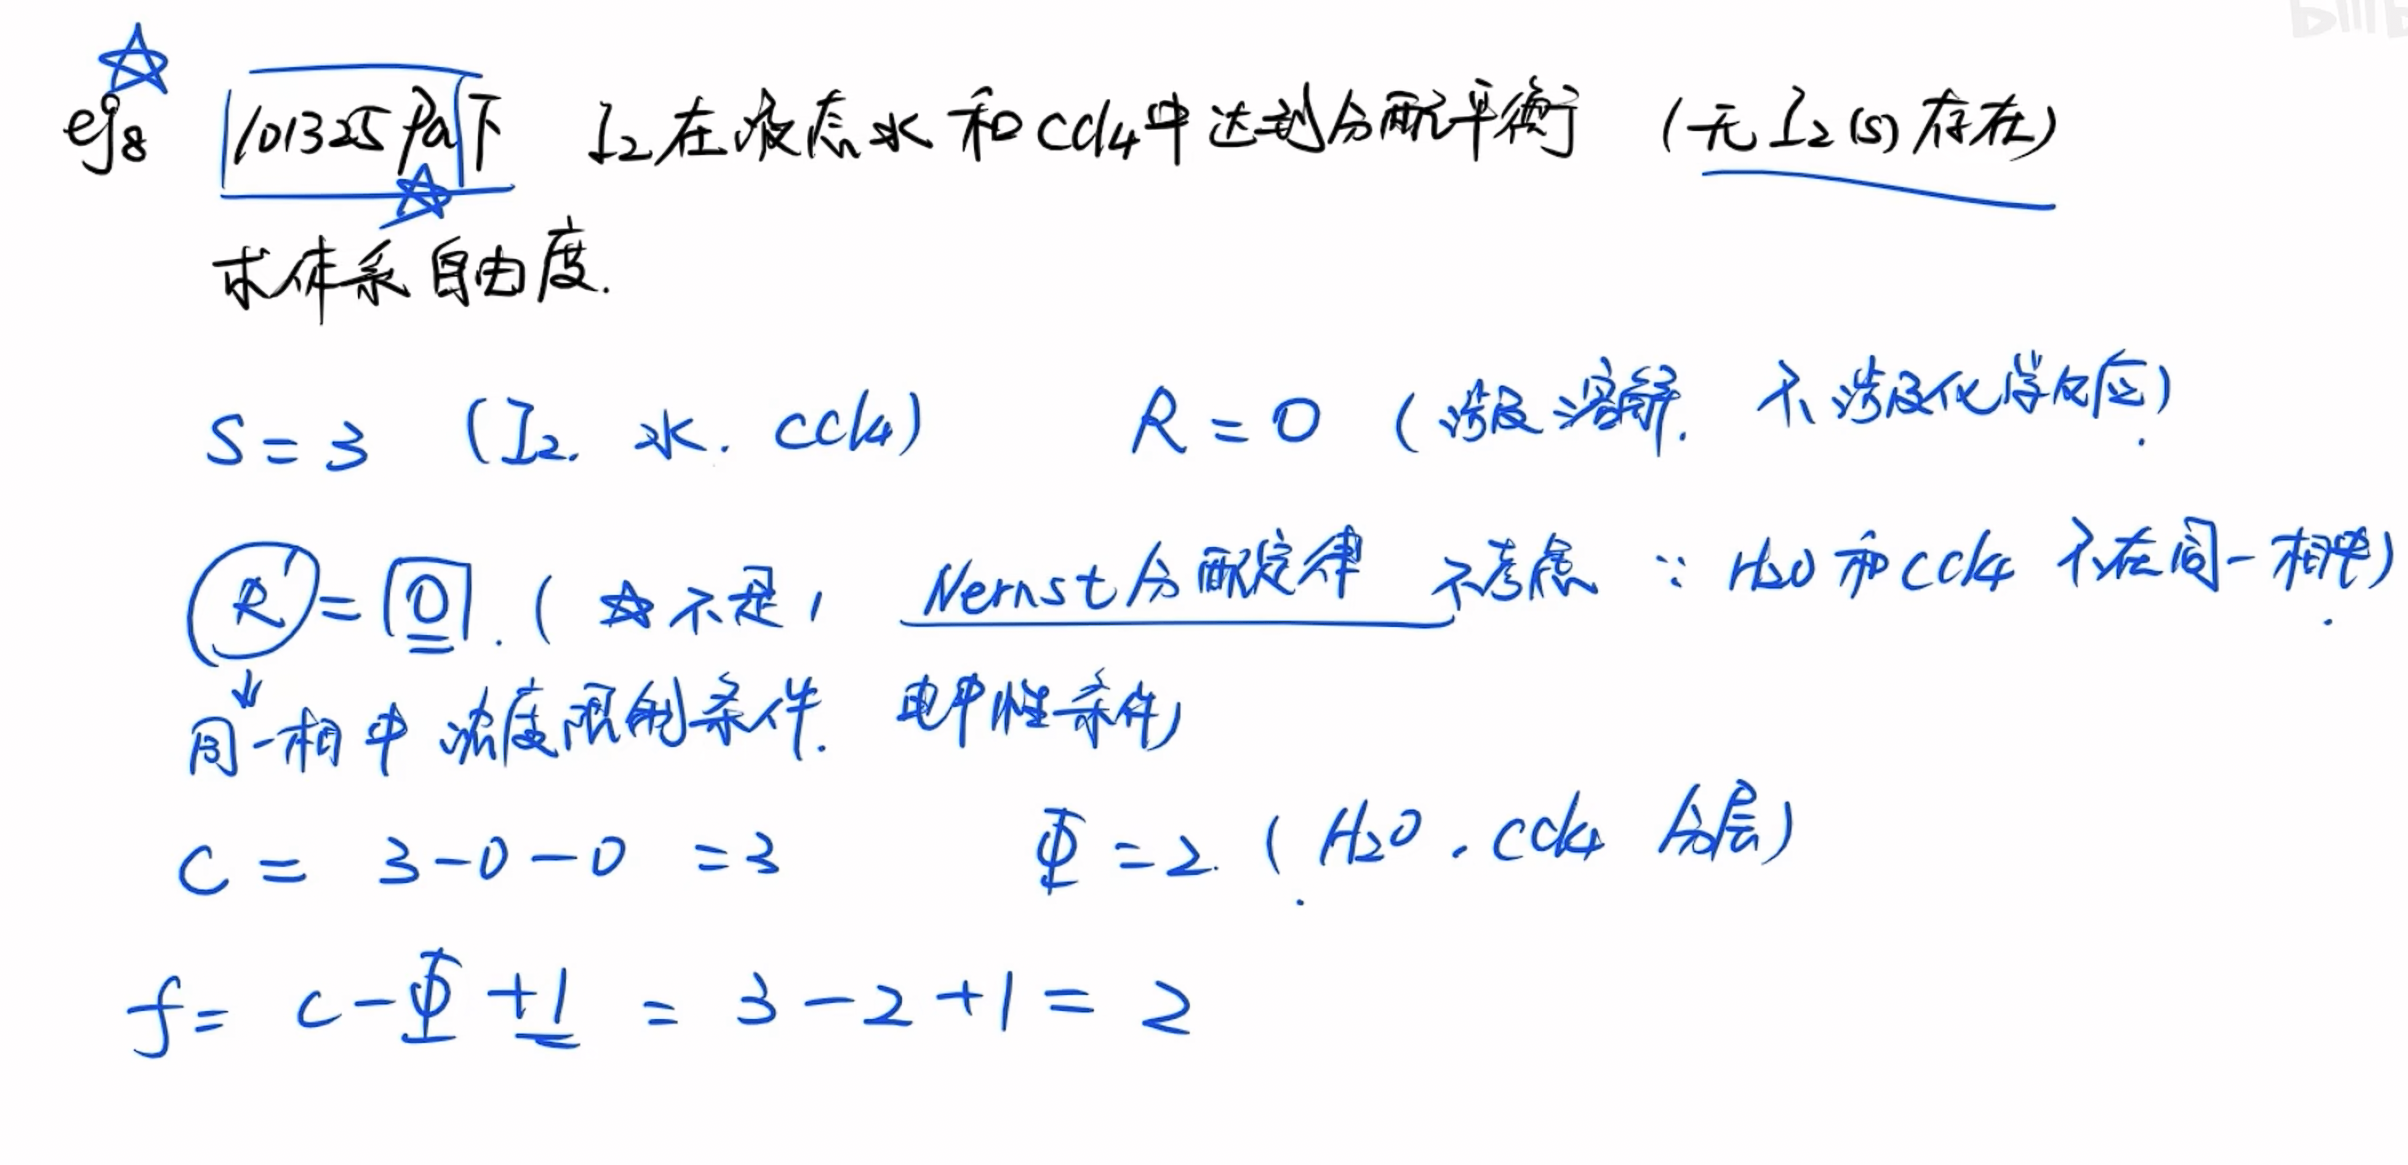 eg8 101325Pa下 I₂在液态水和CCl₄中达到分配平衡 (无I₂(s)存在)
求体系自由度.
S=3 (I₂. 水. CCl₄) R=0 (涉及溶解. 不涉及化学反应)
R'=0. (☆不是1 Nernst分配定律 不考虑 ∵ H₂O和CCl₄不在同一相中)
↓
同一相中浓度限制条件. 电中性条件)
C= 3-0-0 =3 Φ=2. (H₂O. CCl₄ 分层)
f= C-Φ+1 = 3-2+1= 2